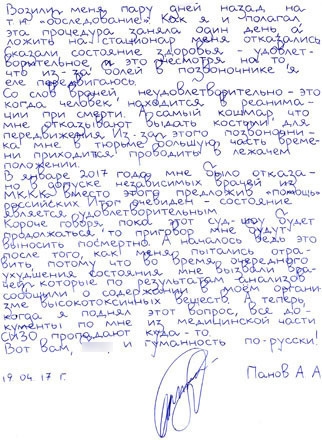 Возили меня пару дней назад на
т.н. «обследование». Как я и полагал
эта процедура заняла один день а
ложить на стационар меня отказались
сказали состояние здоровья - удовлет-
ворительное и это несмотря на то
что из-за болей в позвоночнике я
еле передвигаюсь.
Со слов врачей неудовлетворительно - это
когда человек находится в реанима-
ции при смерти. И самый кошмар что
мне отказывают выдать костыли для
передвижения. Из-за этого позвоночни-
ка мне в тюрьме большую часть време-
ни приходится проводить в лежачем
положении.
В январе 2017 года мне было отказа-
но в допуске независимых врачей из
МККК вместо этого предложив «помощь»
российских. Итог очевиден - состояние
является удовлетворительным
Короче говоря пока этот суд-шоу будет
продолжаться то приговор мне будут
выносить посмертно. А началось ведь это
после того, как меня пытались отра-
вить потому что во время очередного
ухудшения состояния мне вызвали вра-
чей которые по результатам анализов
сообщили о содержании в моём органи-
зме высокотоксичных веществ. А теперь,
когда я поднял этот вопрос, все до-
кументы по мне из медицинской части
СИЗО пропадают куда-то.
Вот вам, и гуманность по-русски!
19.04.17 г.
Панов А.А.